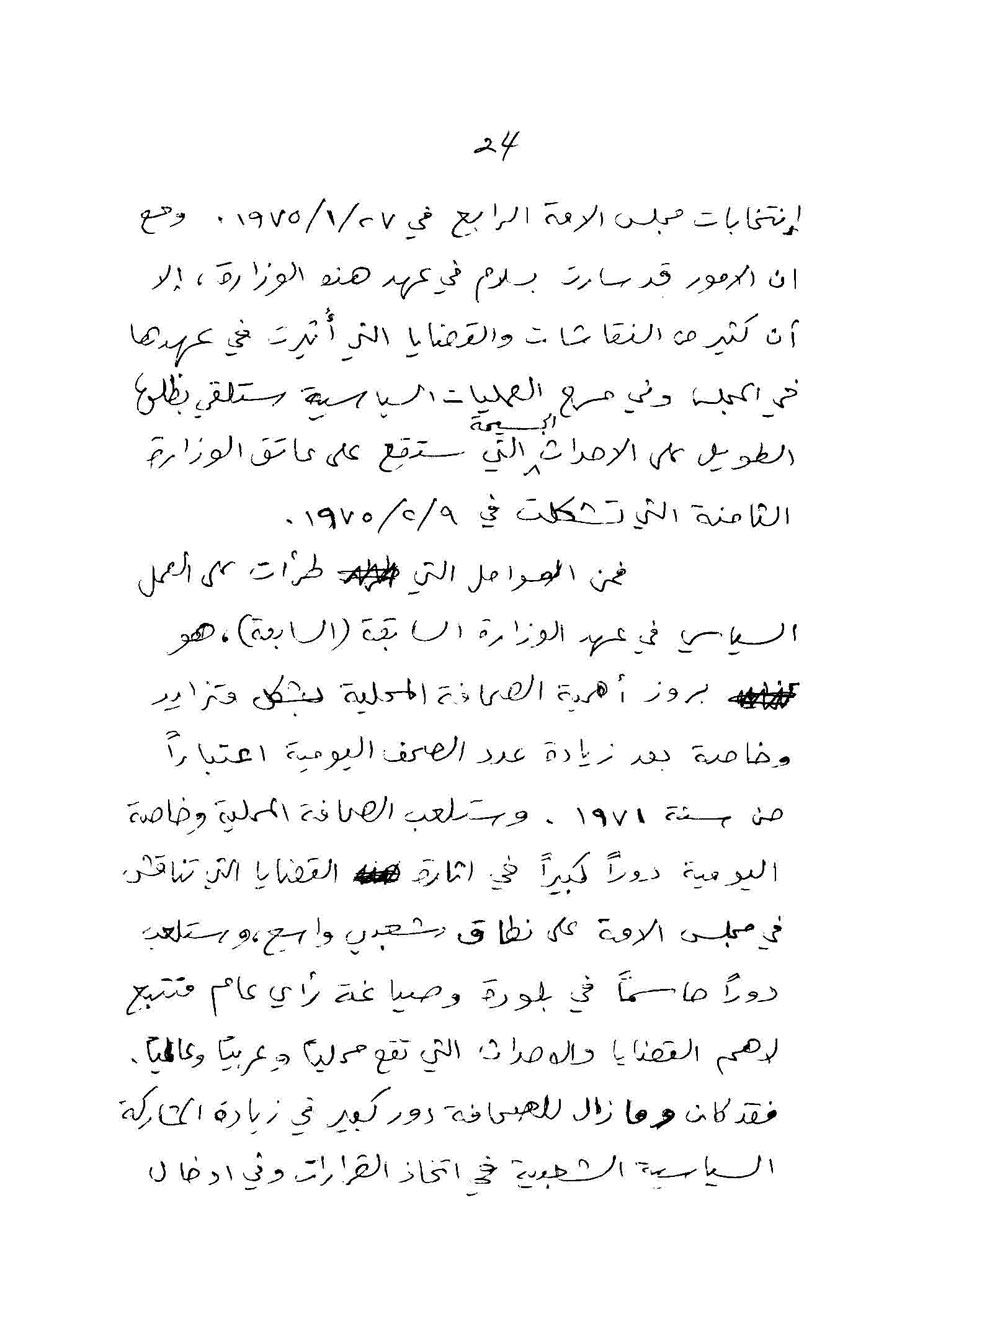 24
إنتخابات مجلس الامة الرابع في ١٩٧٥/١/٢٧ . ومع
ان الامور قد سارت بسلام في عهد هذه الوزارة ، إلا
أن كثير من النقاشات والقضايا التي أُثيرت في عهدها
في المجلس وفي مسرح العمليات السياسية ستلقي بظلها
الطويل على الاحداث الجسيمة التي ستقع على عاتق الوزارة
الثامنة التي تشكلت في ١٩٧٥/٢/٩ .
فمن العوامل التي طرأت على العمل
السياسي في عهد الوزارة السابقة (السابعة) ، هو
بروز أهمية الصحافة المحلية بشكل متزايد
وخاصة بعد زيادة عدد الصحف اليومية اعتباراً
من سنة ١٩٧١ . وستلعب الصحافة المحلية وخاصة
اليومية دوراً كبيراً في اثارة القضايا التي تناقش
في مجلس الامة على نطاق شعبي واسع ، وستلعب
دوراً حاسماً في بلورة وصياغة رأي عام متتبع
لاهم القضايا والاحداث التي تقع محلياً وعربياً وعالمياً .
فقد كان وما زال للصحافة دور كبير في زيادة المشاركة
السياسية الشعبية في اتخاذ القرارات وفي ادخال